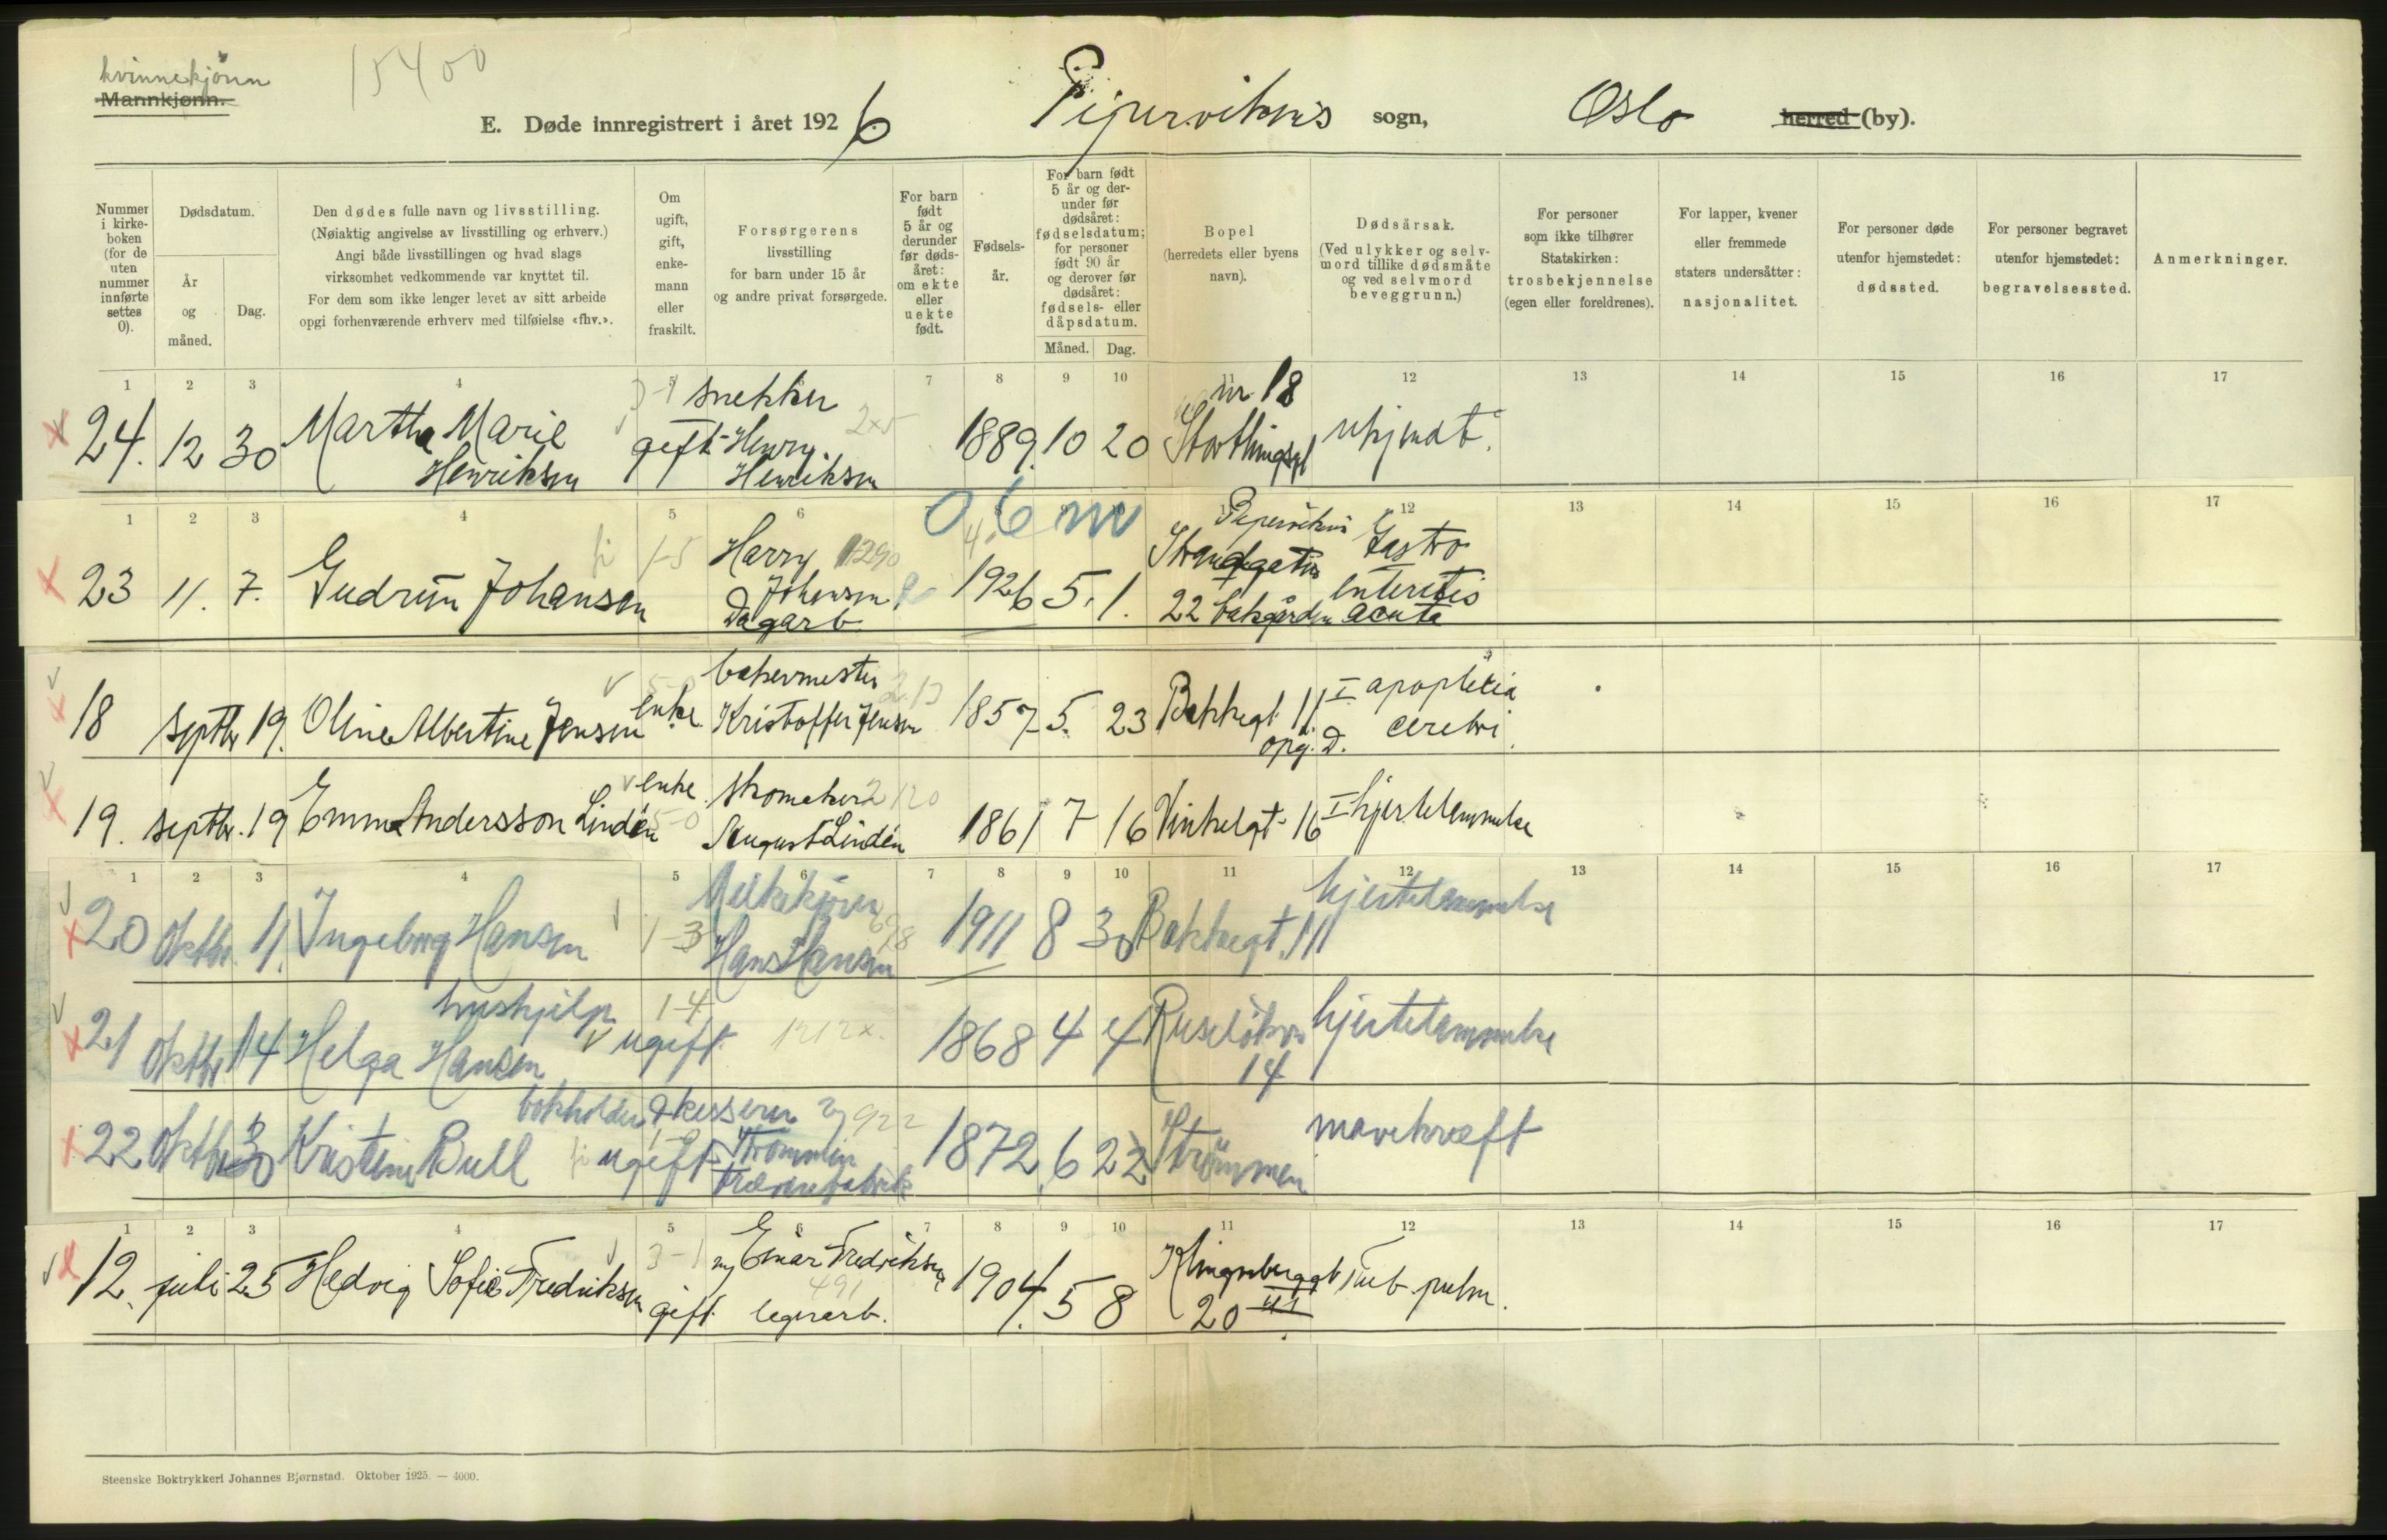 kvinnekjønn
15400
Mannkjønn.
E. Døde innregistrert i året 1926 Pipervikens sogn, Oslo herred (by).
Nummer i kirkeboken (for de uten nummer innførte settes 0).
Dødsdatum.
År og måned.
Dag.
Den dødes fulle navn og livsstilling.
(Nøiaktig angivelse av livsstilling og erhverv.)
Angi både livsstillingen og hvad slags
virksomhet vedkommende var knyttet til.
For dem som ikke lenger levet av sitt arbeide
opgi forhenværende erhverv med tilføielse «fhv.».
Om ugift, gift, enkemann eller fraskilt.
Forsørgerens
livsstilling
for barn under 15 år
og andre privat forsørgede.
For barn født 5 år og derunder før dødsåret: om ekte eller uekte født.
Fødselsår.
For barn født 5 år og derunder før dødsåret: fødselsdatum; for personer født 90 år og derover før dødsåret: fødsels- eller dåpsdatum.
Måned. Dag.
Bopel
(herredets eller byens navn).
Dødsårsak.
(Ved ulykker og selvmord tillike dødsmåte og ved selvmord beveggrunn.)
For personer som ikke tilhører Statskirken: trosbekjennelse (egen eller foreldrenes).
For lapper, kvener eller fremmede staters undersåtter: nasjonalitet.
For personer døde utenfor hjemstedet: dødssted.
For personer begravet utenfor hjemstedet: begravelsessted.
Anmerkninger.
1 2 3 4 5 7 8 9 10 11 12 13 14 15 16 17
3-1 snekker nr 18
24. 12 30 Martha Marie gift Henry 1889. 10 20 Storthingspl ukjendt.
Henriksen Henriksen
1 2 3 4 5 6 12 13 14 15 16 17
1-5 Harry Pipervikens Gastro
23 11. 7. Gudrun Johansen Johansen 1926 5. 1. Strandgaten enteritis
Dagarb 22 bakgården acuta
bakermester
18 septbr 19. Oline Albertine Jensen enke Kristoffer Jensen 1857 5. 23 Bakkegt 11 I apoplexia
opg. D. cerebri
enke skomaker
19. septbr. 19 Emma Andersson Lindén 5-0 August Lindén 1861 7 16 Vinkelgt 16 I hjertelammelse
1 2 3 4 5 6 7 8 9 10 11 12 13 14 15 16 17
Melkekjører hjertelammelse
20 Oktbr. 11. Ingeborg Hansen 1-3 Hans Hansen 1911 8 30 Bakkegt. 11
hushjelp 1-4
21 Oktbr 14 Helga Hansen ugift 1868 4 4 Ruseløkvn 14 hjertelammelse
bokholder & kasserer
22 Oktbr 30 Kristine Bull ugift Strømmen 1872 6 22 Strømmen mavekræft
Trævarefabrik
1 2 3 4 5 6 7 8 9 10 11 12 13 14 15 16 17
3-1 Einar Fredriksen
12. juli 25 Hedvig Sofie Fredriksen gift 491 1904. 5 8 Klingenberggt Tub. pulm.
lagerarb. 20 III
Steenske Boktrykkeri Johannes Bjørnstad. Oktober 1925. — 4000.